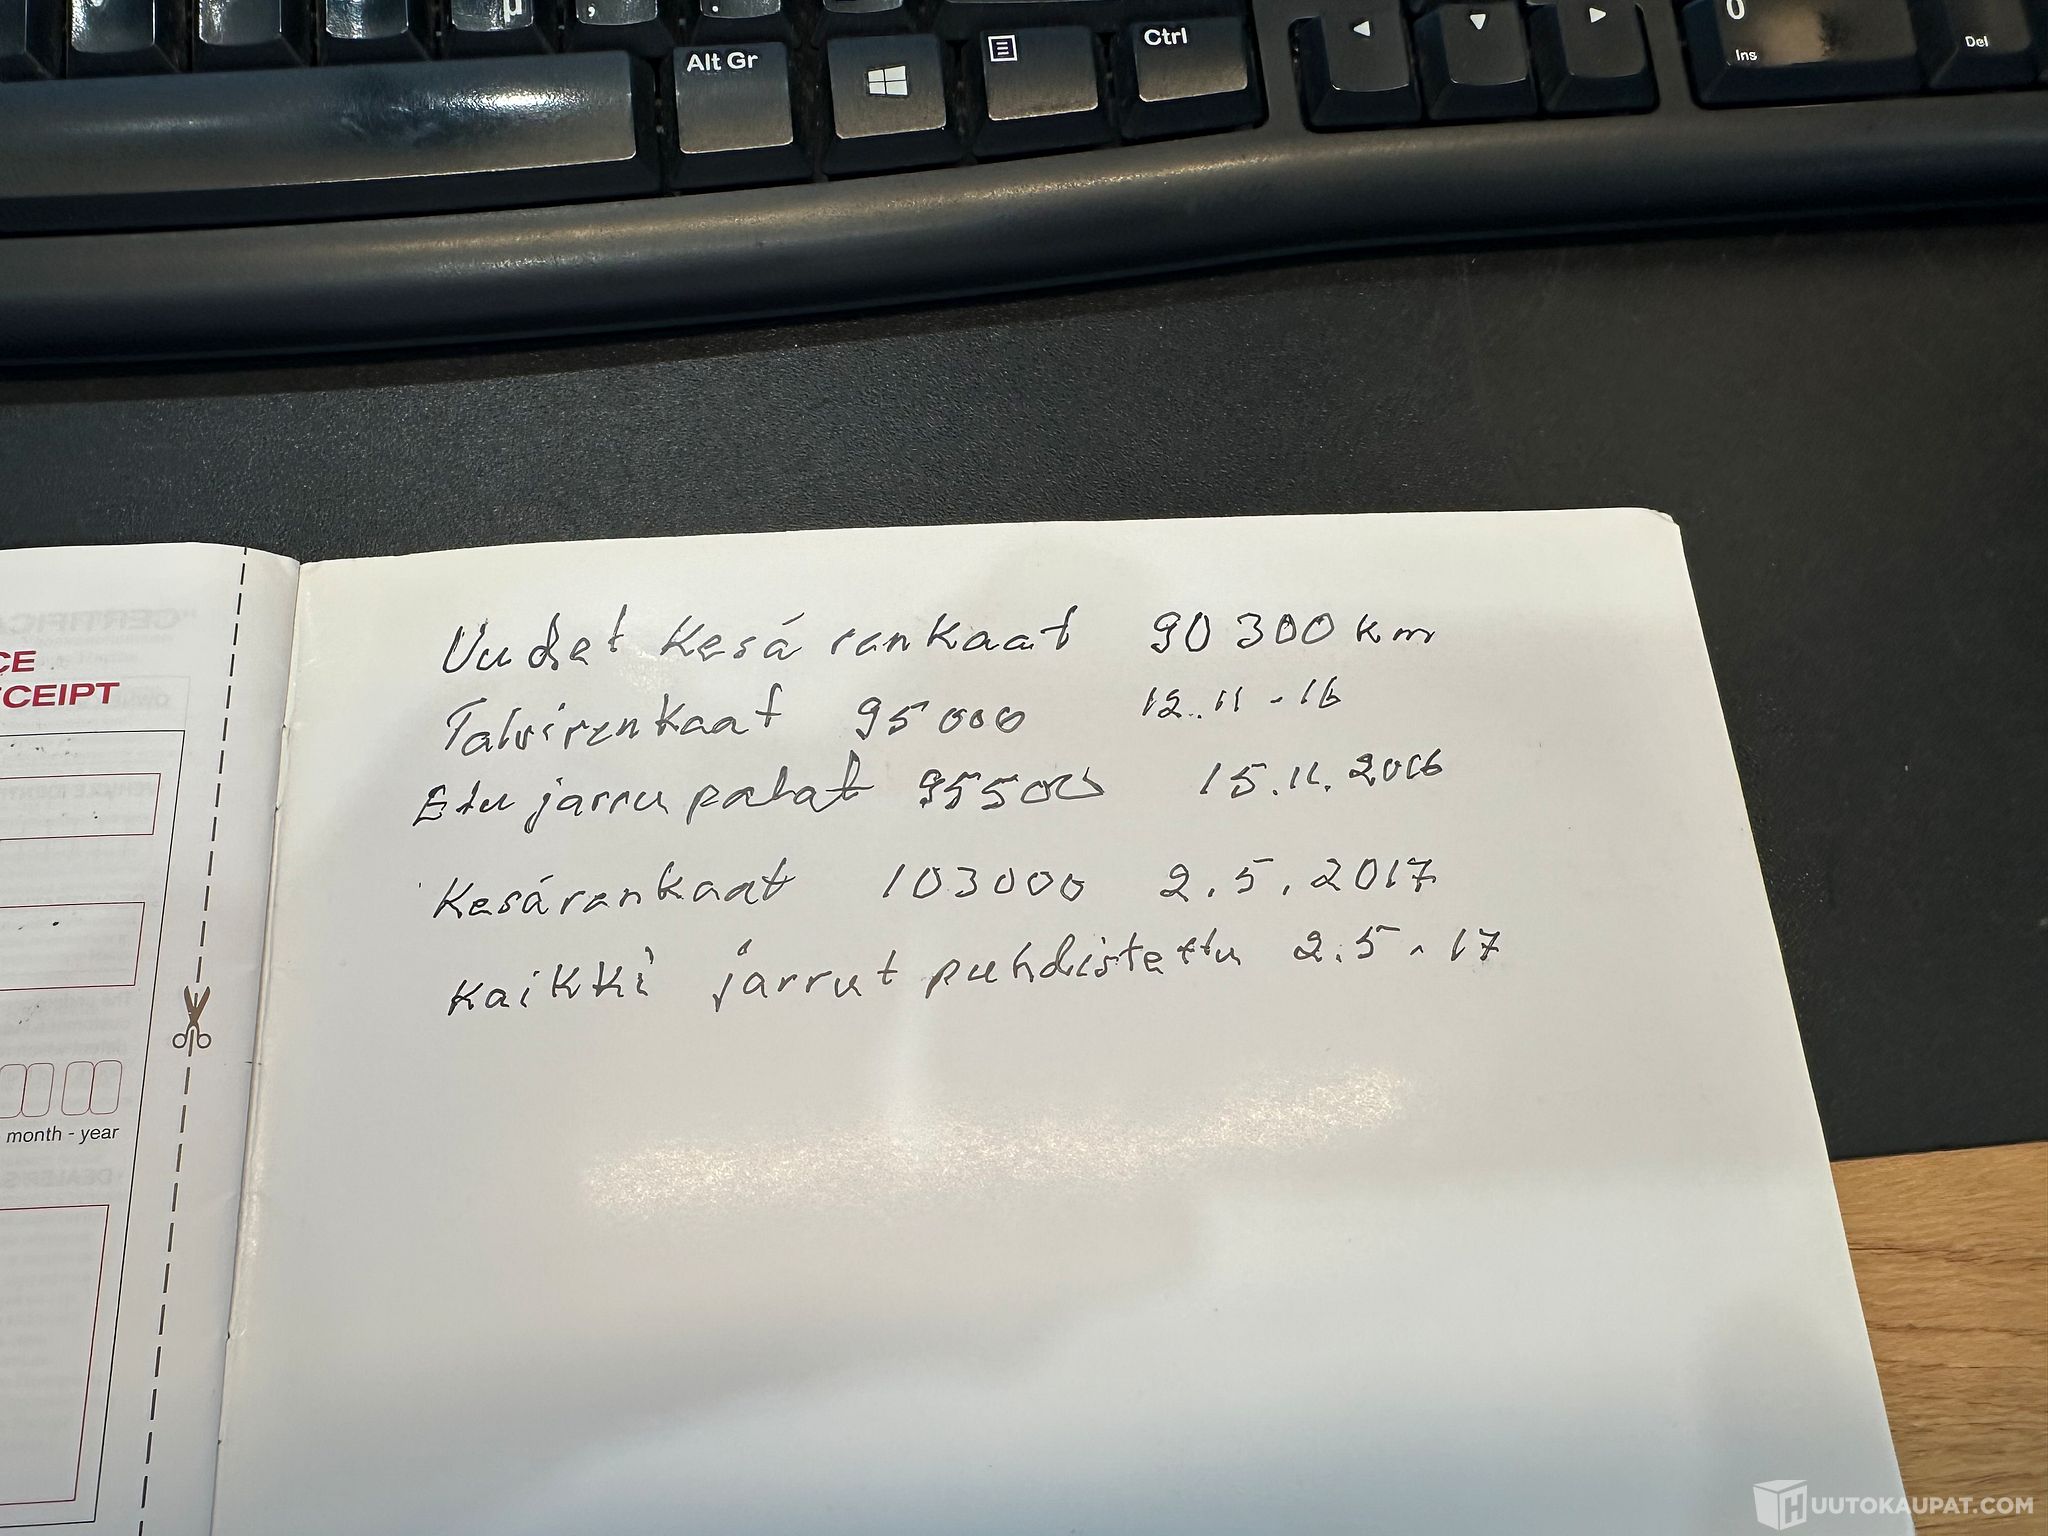 µ
Alt Gr
Ctrl
0
Ins
Del
Uudet Kesá renkaat 90 300 km
Talvirenkaat 95 000 12.11-16
Etu jarru palat 95500 15.11.2016
Kesárenkaat 103000 2.5.2017
Kaikki jarrut puhdistettu 2.5-17
CE
CEIPT
month - year
HUUTOKAUPAT.COM